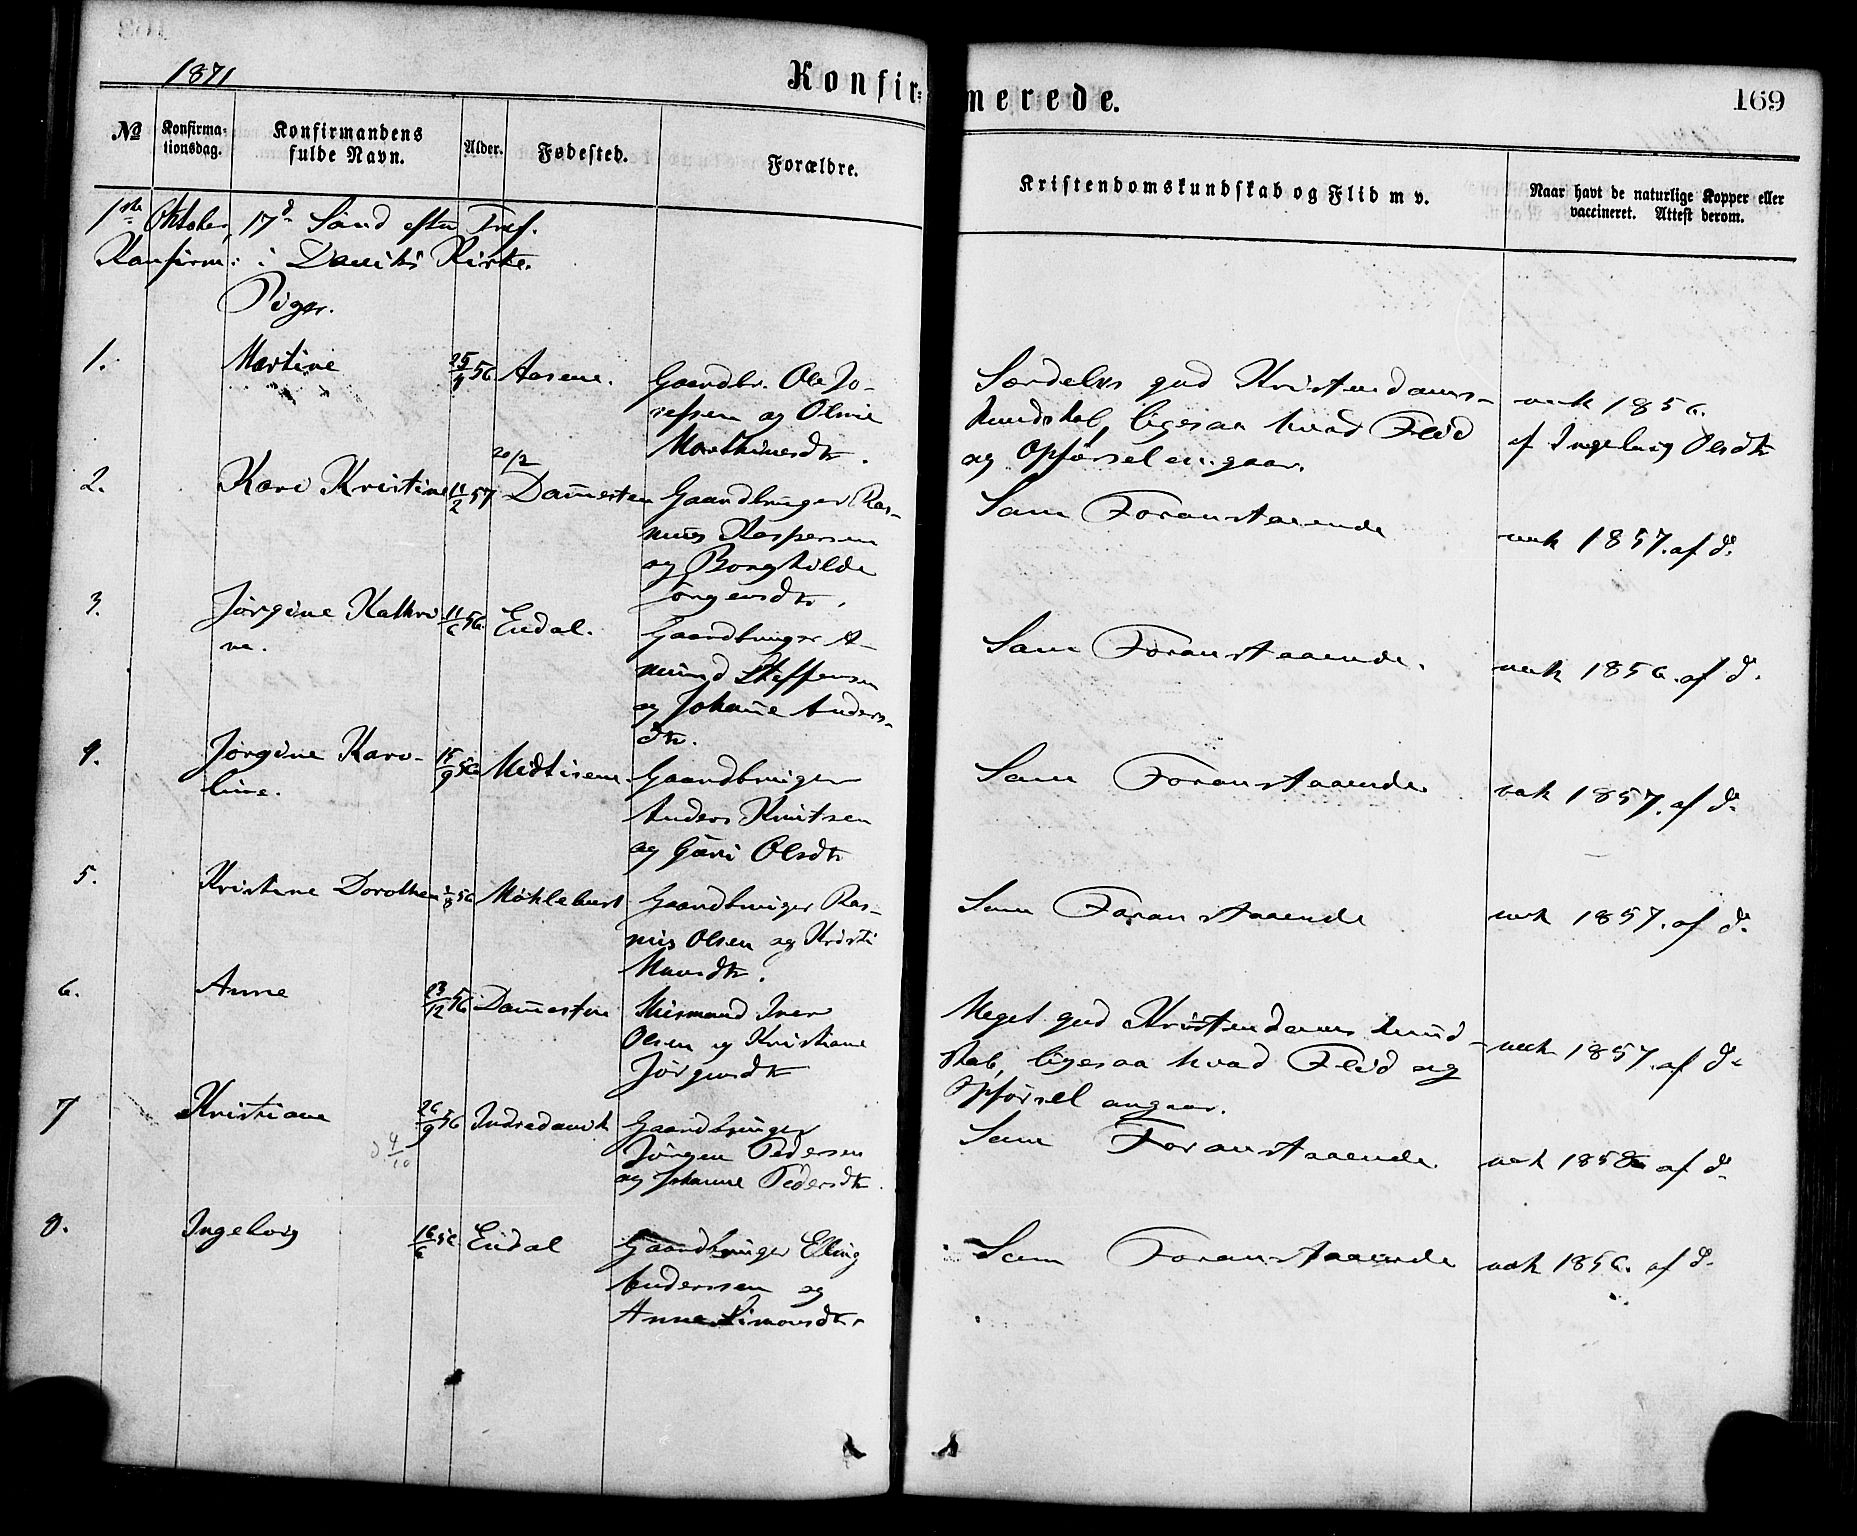 1871
Konfirmerede.
169
No
Konfirma-
tionsdag.
Konfirmandens
fulde Navn.
Alder.
Fødested.
Forældre.
Kristendomskundskab og Flid m v.
Naar havt de naturlige Kopper eller
vaccineret. Attest derom.
1ste Oktober, 17d Sønd efter Tref.
Konfirm: i Daviks Kirke.
Piger.
1. Martine 25/4 56 Aasene. Gaardbr. Ole Jo-
sefsen og Oline
Marthinesdtr.
Særdeles god Kristendoms-
kundskab, ligesaa hvad Flid
og Opførsel angaar.
vak 1856.
af Ingeborg Olsdtr
20/2
2. Kari Kristine 11/2 57 Dammesten Gaardbruger Ras-
mus Kaspersen
og Borghilde
Jørgensdtr.
Som Foranstaaende
vak 1857. af do
3. Jørgine Kathri 11/6 56 Endal. Gaardbruger A-
ne.
mund Steffensen
og Johanne Anders-
dtr.
Som Foranstaaende.
vak 1856. af do.
4. Jørgine Karo- 15/9 56 Midtisene Gaardbruger
line.
Anders Knutsen
og Guri Olsdtr
Som Foranstaaende
vak 1857. af do
5. Kristine Dorothea /8 56 Møklebust Gaardbruger Ras-
mus Olsen og Kristi
Monsdtr.
Som Foranstaaende
vak 1857. af do
6. Anne 23/12 56 Dammesten Huusmand Iver
Olsen og Kristiane
Jørgensdtr
Meget god Kristendoms kund-
skab, ligesaa hvad Flid og
Opførsel angaar.
vak 1857. af do
7 Kristiane 26/9 56 Indredavik Gaardbruger
d. 4/10
Jørgen Pedersen
og Johanne Pedersdtr.
Som Foranstaaende
vak 1858 af do
8. Ingeborg 16/6 56 Endal Gaardbruger Elling
Anderssen og
Anne Simonsdtr.
Som Foranstaaende
vak 1856. af do.